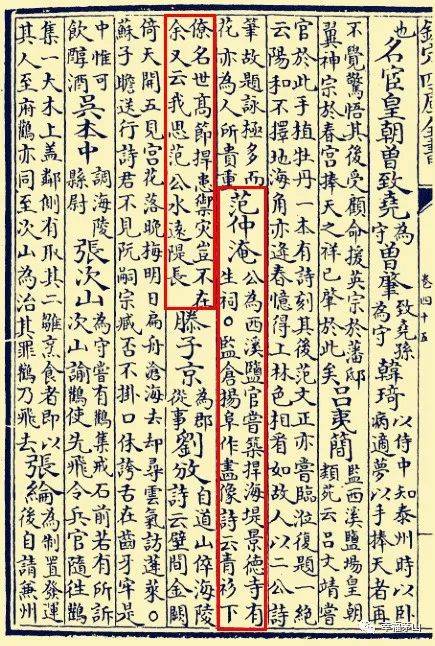 欽定四庫全書
卷四十五
也 名宦皇朝曾致堯 為守 曾肇 致堯孫為守 韓琦 以侍中知泰州時以卧病適夢以手捧天者再
不覺驚悟其後受顧命援英宗於藩邸翼神宗於春宫捧天之祥已肇於此矣 呂夷簡 監西溪鹽場皇朝類苑云呂文靖嘗
官於此手植牡丹一本有詩刻其後范文正亦嘗臨涖復題一絶云陽和不擇地海角亦逢春憶得上林色相看如故人以二公詩
筆故題詠極多而花亦為人所貴重 范仲淹 公為西溪鹽官嘗築捍海堤景德寺有生祠。監倉楊阜作畫像詩云青衫下
僚名世髙節捍患禦灾豈不在余又云我思范公水遠隄長 滕子京 為郡從事 劉攽 自道山倅海陵詩云壁間金闕
倚天開五見宫花落晚梅明日扁舟滄海去却尋雲氣訪蓬萊。蘇子瞻送行詩君不見阮嗣宗臧否不掛口休誇舌在齒牙牢是
中惟可飲醇酒 呉本中 調海陵縣尉 張次山 為守嘗有鸛集戒石前若有所訴次山諭鸛使先飛令兵官隨往鸛
集一大木上蓋鄰側有取其二雛烹食者即以其人至府鸛亦同至次山為治其罪鸛乃飛去 張綸 為制置發運後自請兼州
幸福茅山